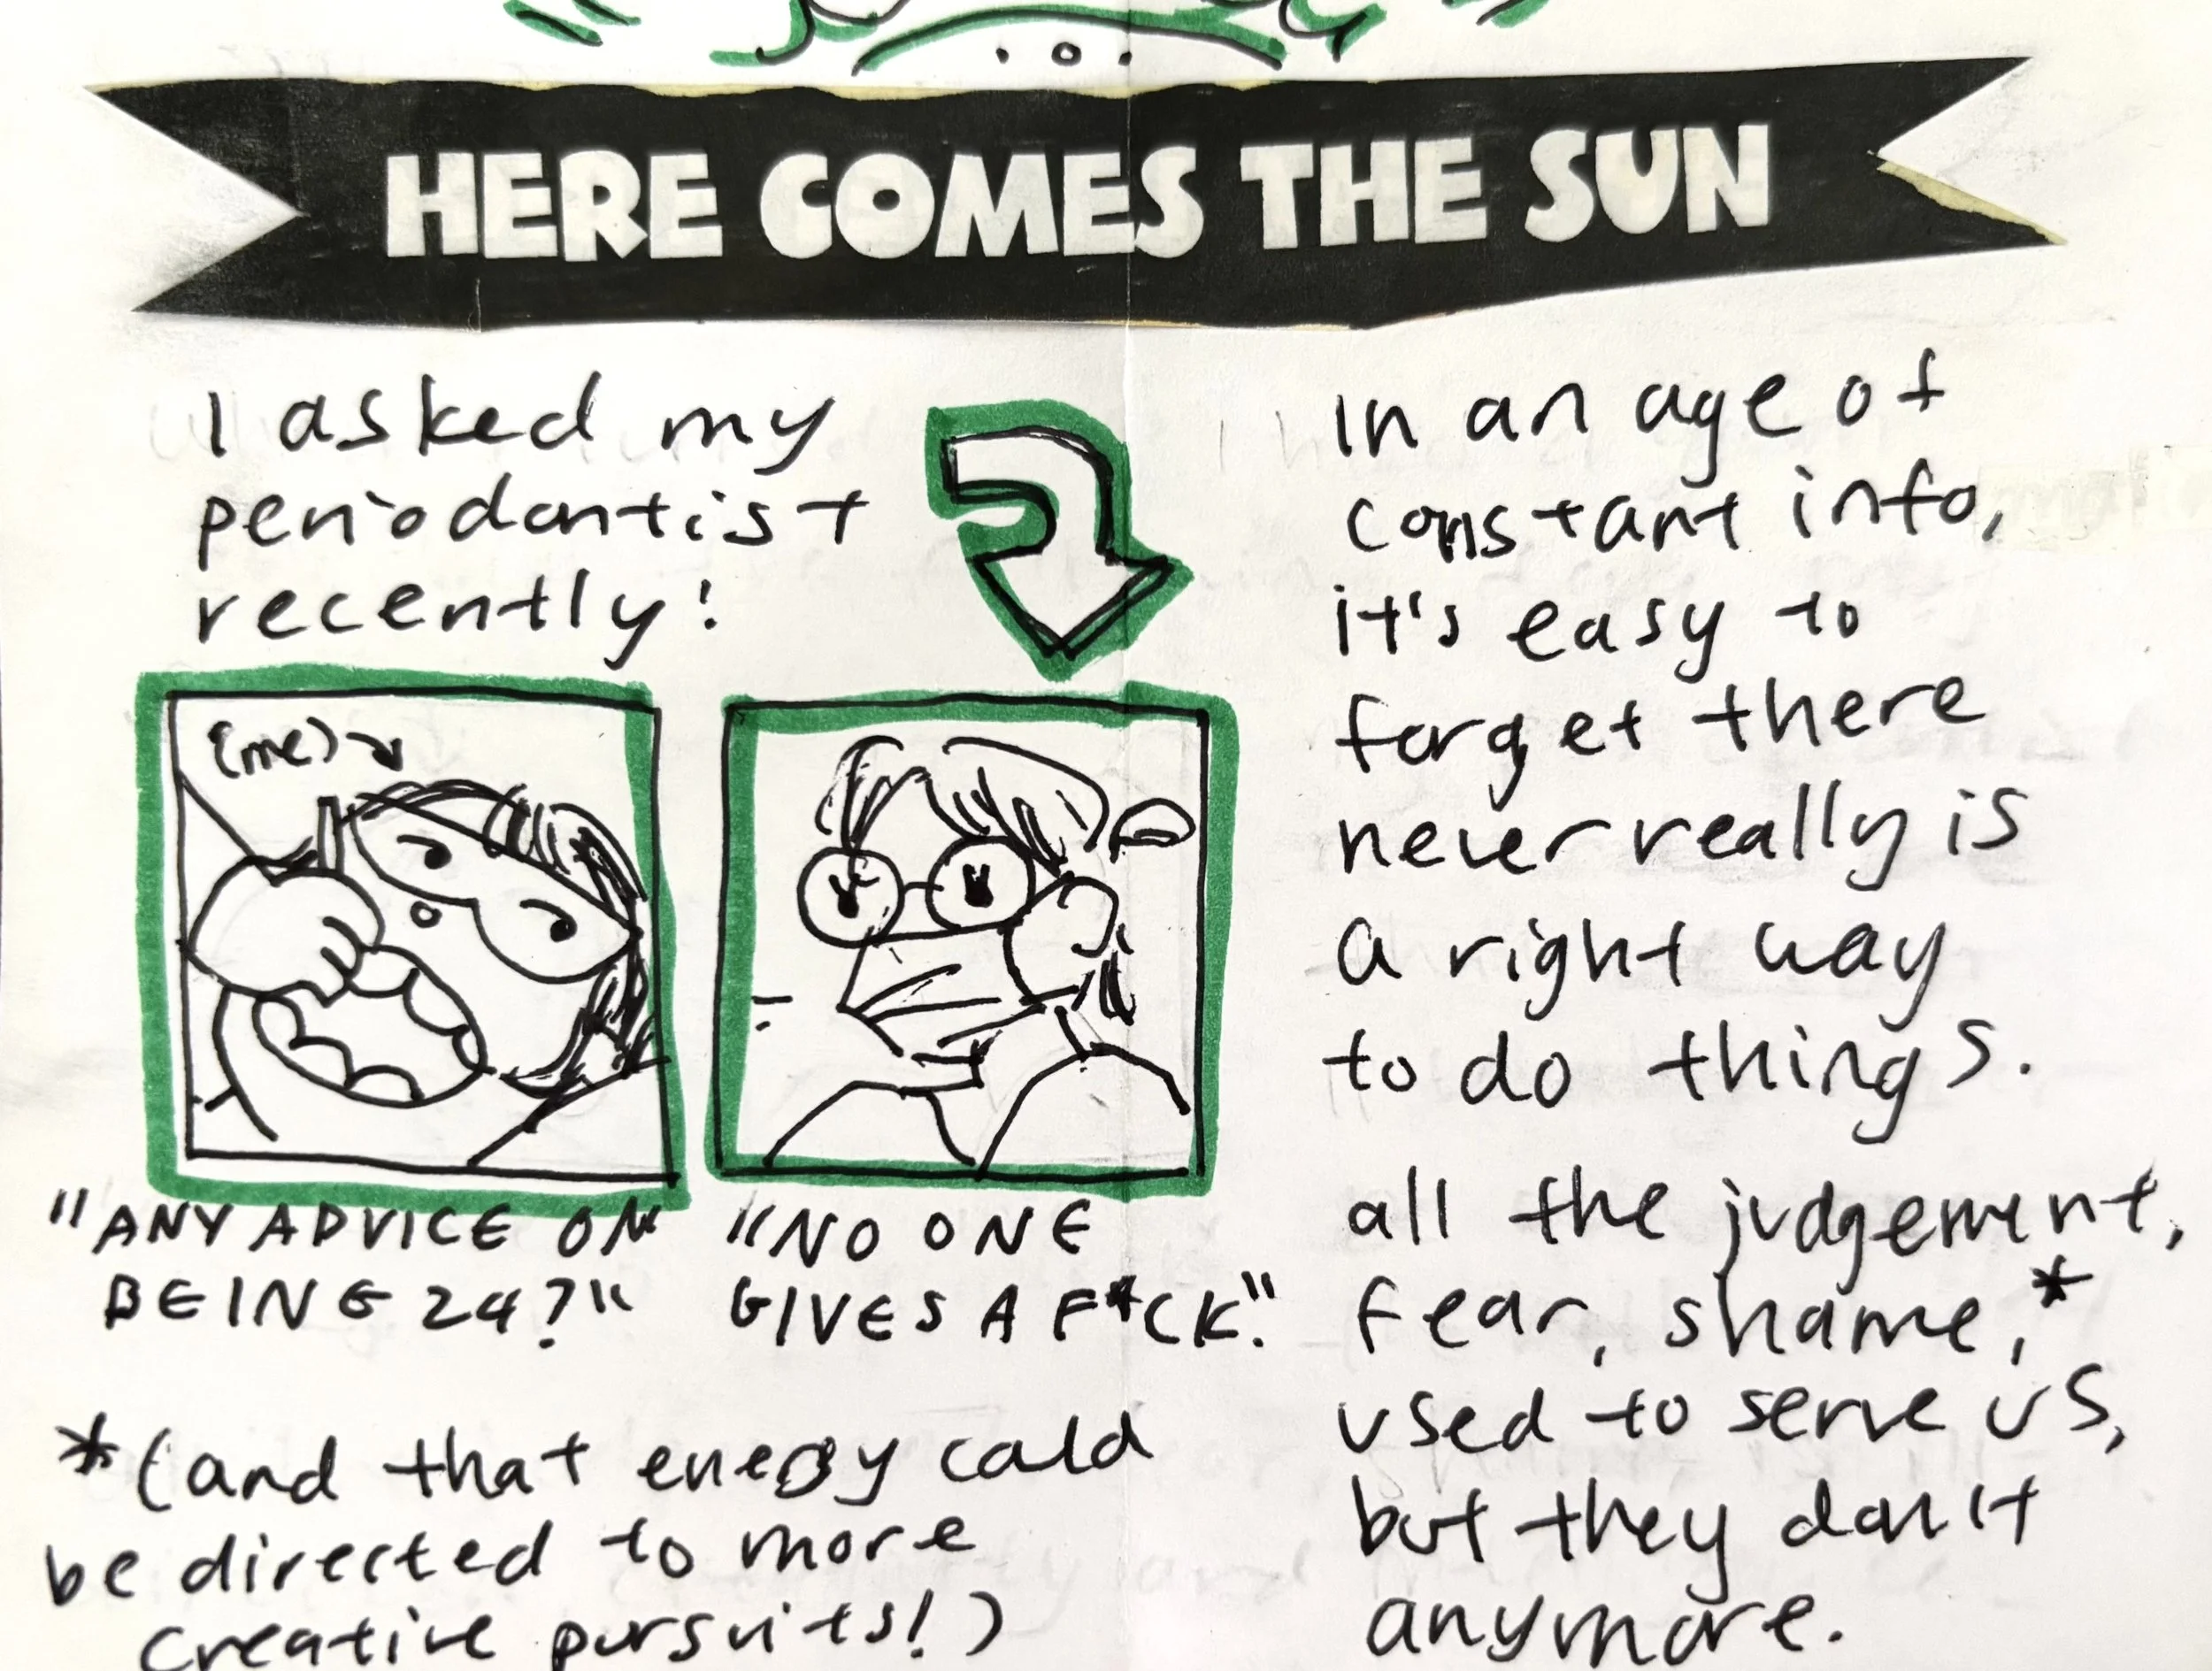 HERE COMES THE SUN
I asked my
periodontist
recently!
(me)
"ANY ADVICE ON
BEING 24?"
"NO ONE
GIVES A F*CK."
*(and that energy could
be directed to more
creative pursuits!)
In an age of
constant info,
it's easy to
forget there
never really is
a right way
to do things.
all the judgement,
fear, shame,*
used to serve us,
but they don't
anymore.